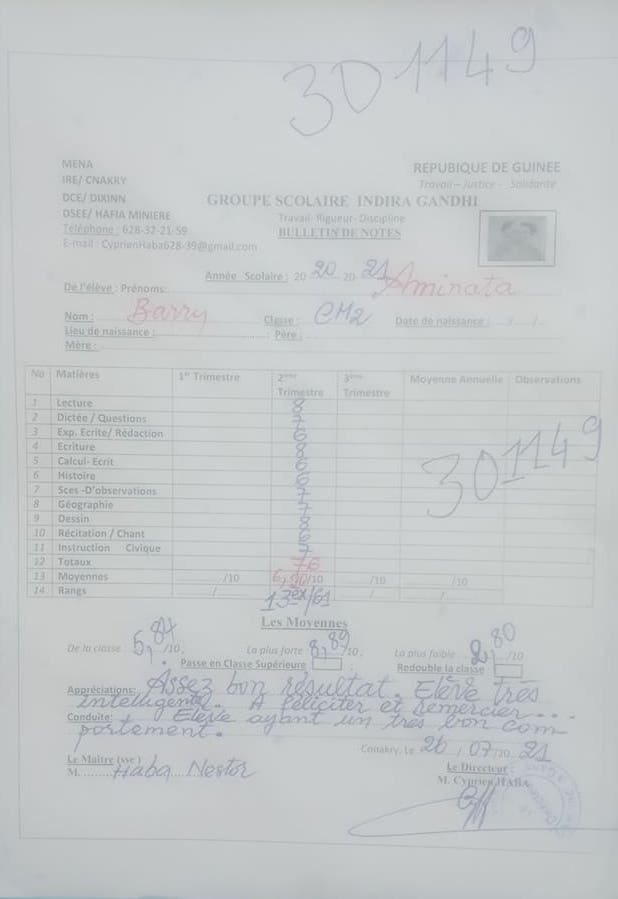 301149
MENA
IRE/ CNAKRY
DCE/ DIXINN
DSEE/ HAFIA MINIERE
Téléphone : 628-32-21-59
E-mail : CyprienHaba628-39@gmail.com
REPUBIQUE DE GUINEE
Travail – Justice - Solidarité
GROUPE SCOLAIRE INDIRA GANDHI
Travail- Rigueur- Discipline
BULLETIN DE NOTES
Année Scolaire : 20 20 20 21
De l'élève : Prénoms: Aminata
Nom : Barry Classe : CM2 Date de naissance : / /
Lieu de naissance : Père :
Mère :
No Matières 1er Trimestre 2ème Trimestre 3ème Trimestre Moyenne Annuelle Observations
1 Lecture 8
2 Dictée / Questions 7
3 Exp. Ecrite/ Rédaction 6
4 Ecriture 8
5 Calcul- Ecrit 6
6 Histoire 6
7 Sces -D'observations 7
8 Géographie 7
9 Dessin 8
10 Récitation / Chant 6
11 Instruction Civique 7
12 Totaux 76
13 Moyennes /10 6,90/10 /10 /10
14 Rangs / 13ex/61 / /
301149
Les Moyennes
De la classe 5,84/10, La plus forte 8,89/10, La plus faible 2,80/10
Passe en Classe Supérieure : Redouble la classe
Appréciations: Assez bon résultat. Elève très
intelligente. A féliciter et remercier...
Conduite: Elève ayant un très bon com
portement.
Conakry, Le 26 / 07/20 21
Le Maître (sse)
M. Haba Nestor
Le Directeur
M. Cyprien HABA